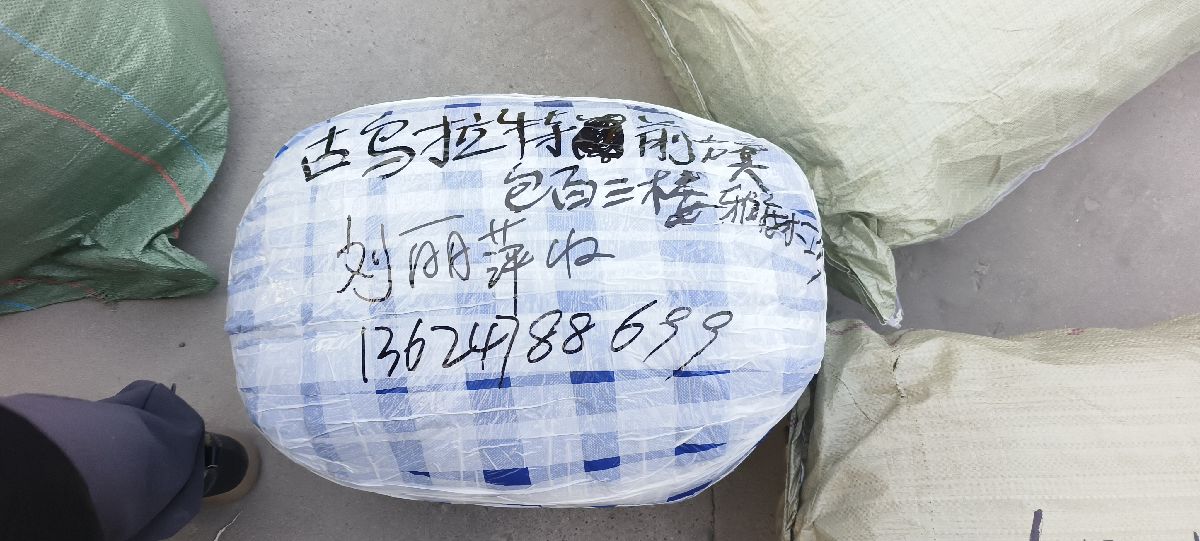 古乌拉特前旗
包百三楼雅
刘丽萍收
13624788699